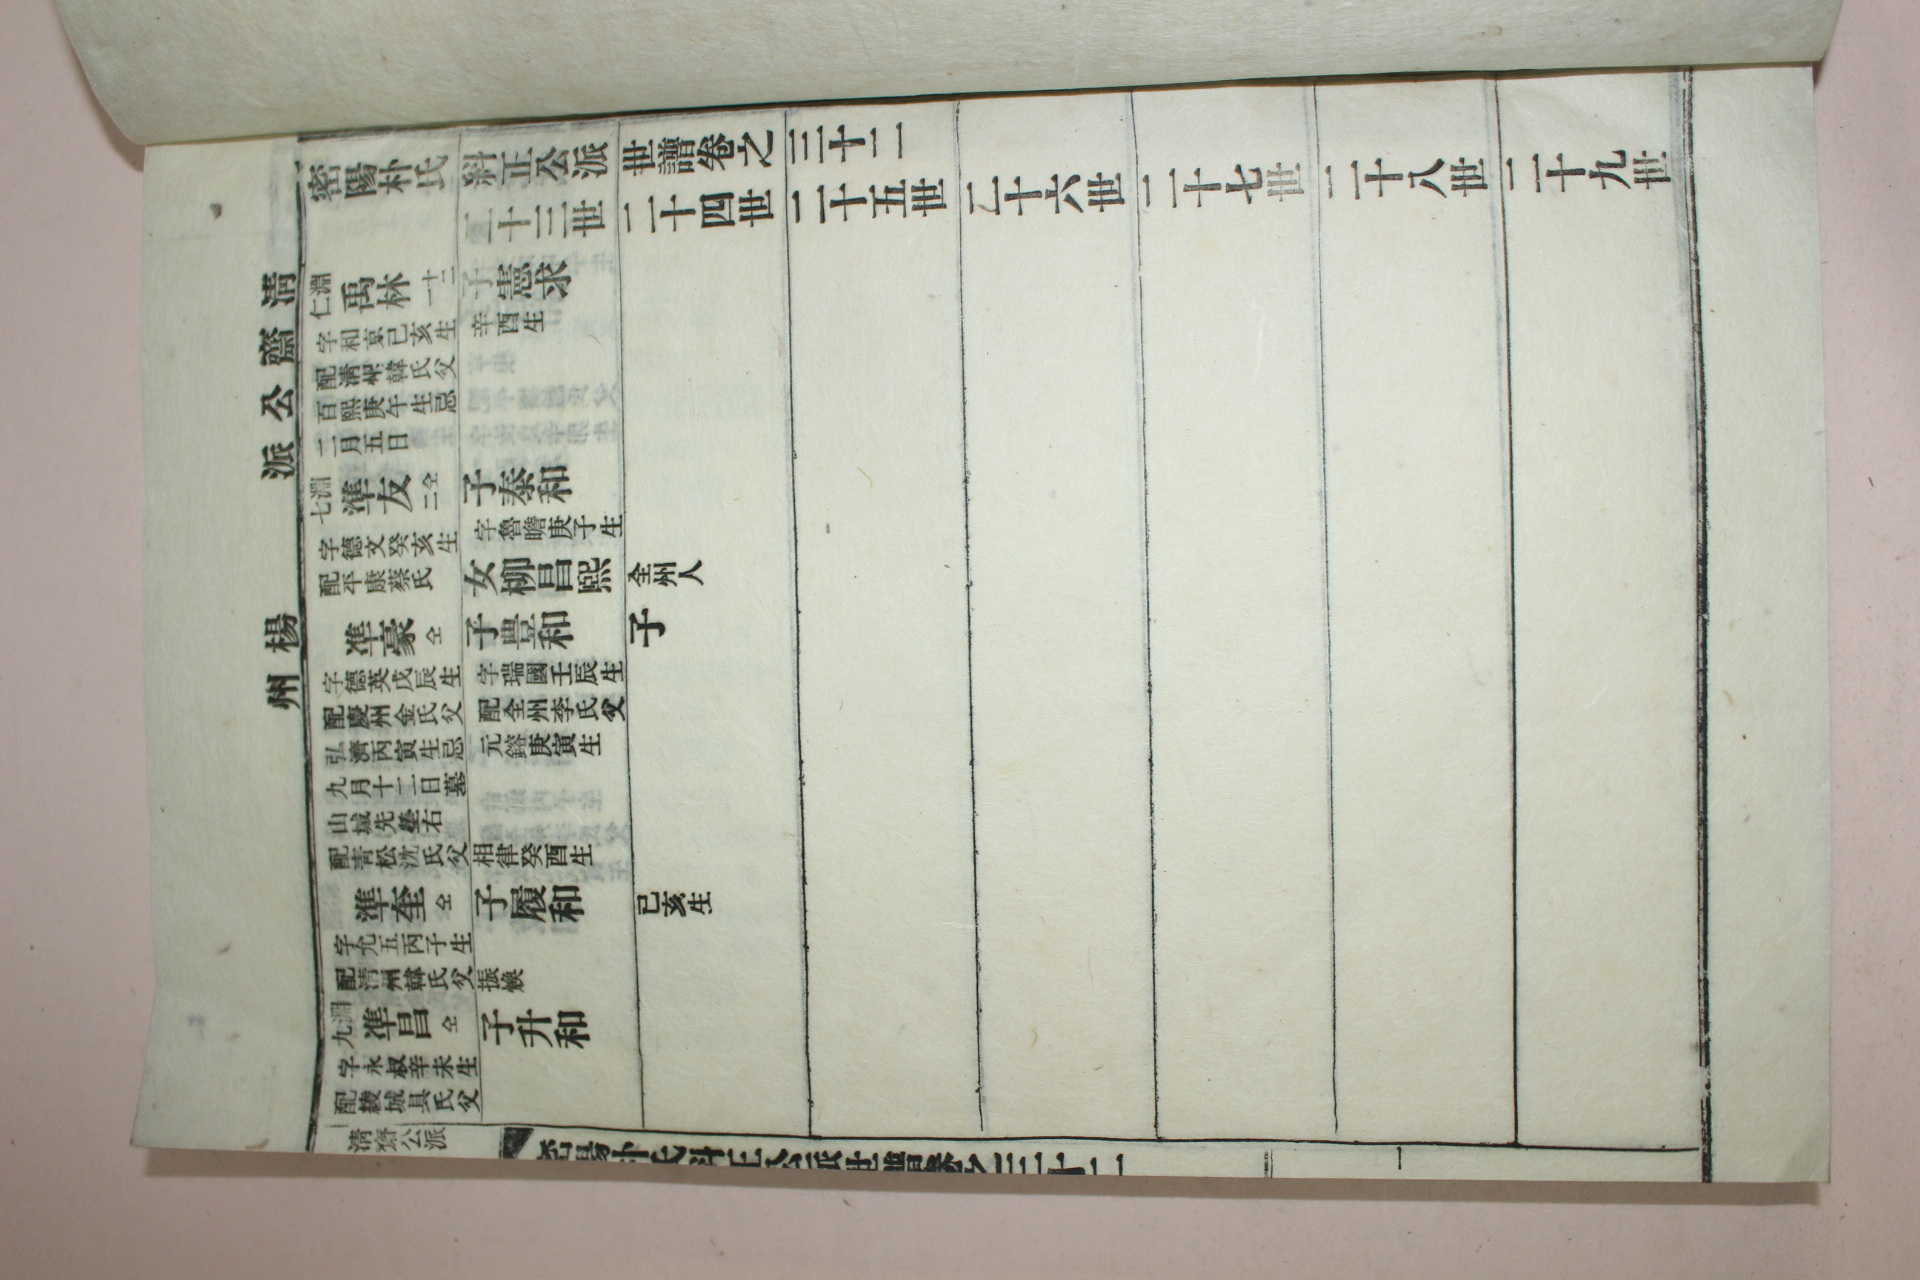 密陽朴氏糾正公派世譜卷之三十二
二十三世
二十四世
二十五世
二十六世
二十七世
二十八世
二十九世
淸齋公派
楊州
仁淵
禹林 十二一
字和京己亥生
配淸州韓氏父
百熙庚午生忌
二月五日
子憲求
辛酉生
七淵
準友 仝二
字德文癸亥生
配平康蔡氏
子泰和
字魯瞻庚子生
女柳昌熙
全州人
準豪 仝
字德英戊辰生
配慶州金氏父
弘濟丙寅生忌
九月十二日墓
山城先塋右
配靑松沈氏父
相律癸酉生
子豊和
字瑞國壬辰生
配全州李氏父
元鎔庚寅生
子
準奎 仝
字允五丙子生
配淸州韓氏父
振煥
子履和
己亥生
九淵
準昌 仝
字永叔辛未生
配綾城具氏父
子升和
淸齋公派
密陽朴氏糾正公派世譜卷之三十二
一